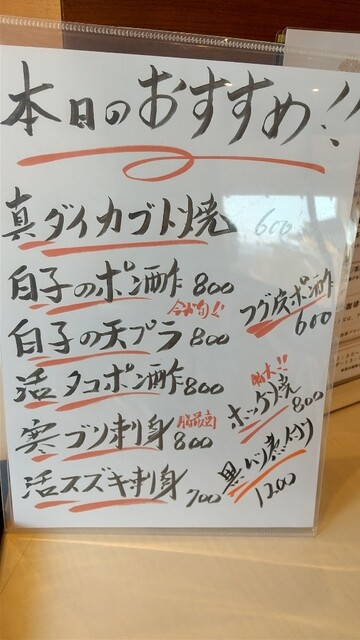 本日のおすすめ!!
真ダイカブト焼 600
白子のポン酢 800
今が旬!!
白子の天プラ 800
活タコポン酢 800
寒ブリ刺身 800
活スズキ刺身 700
フグ皮ポン酢 600
特大!!
ホッケ焼 800
黒ムツ煮付け 1200